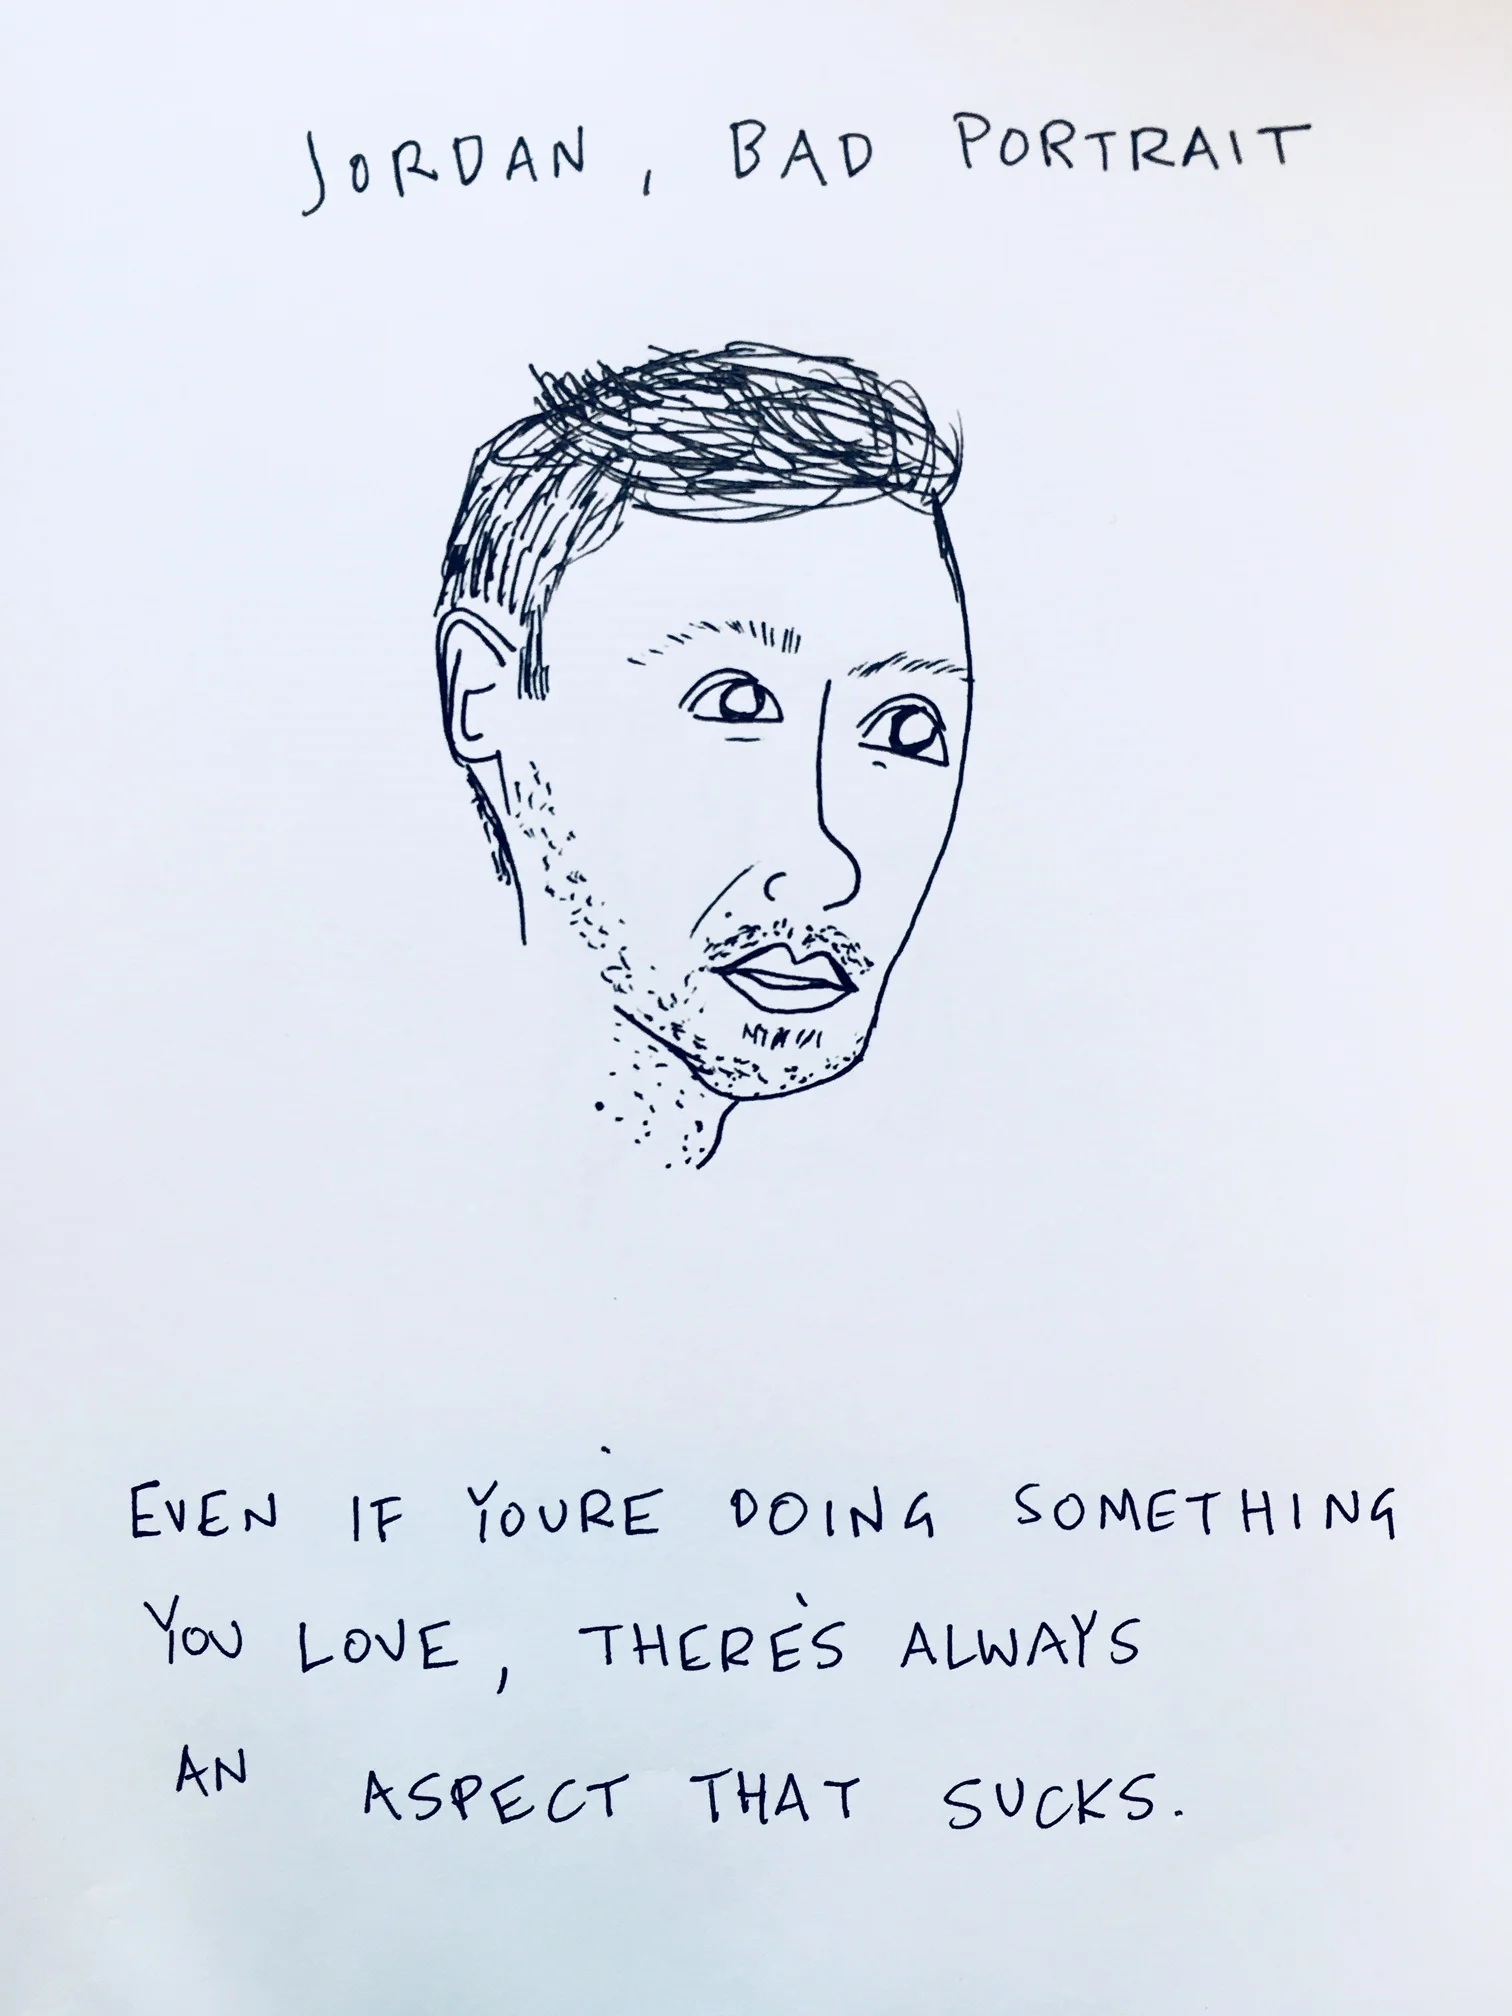 JORDAN, BAD PORTRAIT
EVEN IF YOU'RE DOING SOMETHING
YOU LOVE, THERE'S ALWAYS
AN ASPECT THAT SUCKS.